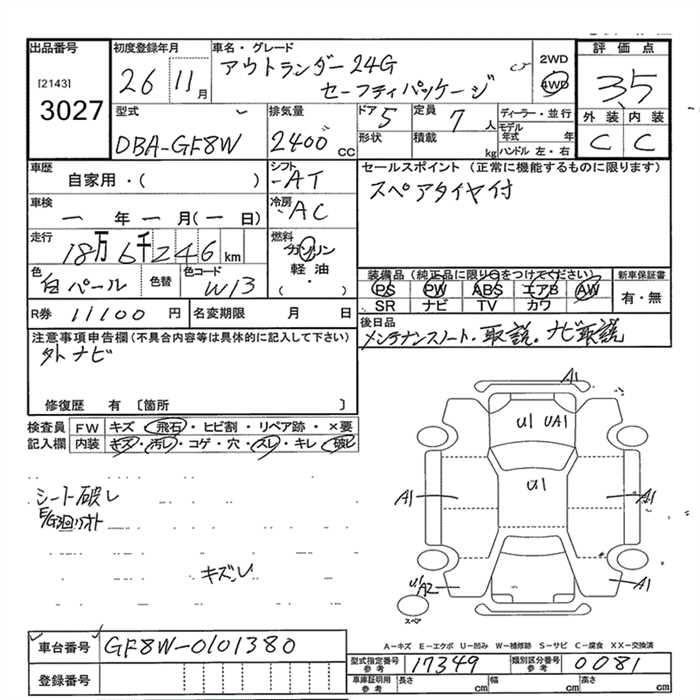 出品番号
[2143]
3027
初度登録年月
26 11月
車名・グレード
アウトランダー24G
セーフティパッケージ
2WD
4WD
評価点
3.5
外装 内装
C C
型式
DBA-GF8W
排気量
2400 cc
ドア 5
形状
定員 7人
積載 kg
ディーラー・並行
モデル年式 年
ハンドル 左・右
車歴
自家用・( )
シフト
AT
セールスポイント (正常に機能するものに限ります)
スペアタイヤ付
車検
ー年ー月(ー日)
冷房
AC
走行
18万6千246km
燃料
ガソリン
軽油
( ・ )
色
白パール
色替
色コード
W13
装備品(純正品に限り○をつけてください)
PS PW ABS エアB AW
SR ナビ TV カワ
新車保証書
有・無
R券 11100円
名変期限 月 日
後日品
メンテナンスノート・取説・ナビ取説
注意事項申告欄(不具合内容等は具体的に記入して下さい)
外ナビ
修復歴 有 〔箇所 〕
検査員記入欄
FW キズ・飛石・ヒビ割・リペア跡・×要
内装 キズ・汚レ・コゲ・穴・スレ・キレ・破レ
シート破レ
キズレ
A1
U1 UA1
U1
A1
A1
U1 A2
A1
スペア
A-キズ E-エクボ U-凹み W-補修跡 S-サビ C-腐食 XX-交換済
車台番号 GF8W-0101380
登録番号
型式指定番号参考 17349
類別区分番号参考 0081
車庫証明用参考 長さ cm 幅 cm 高さ cm